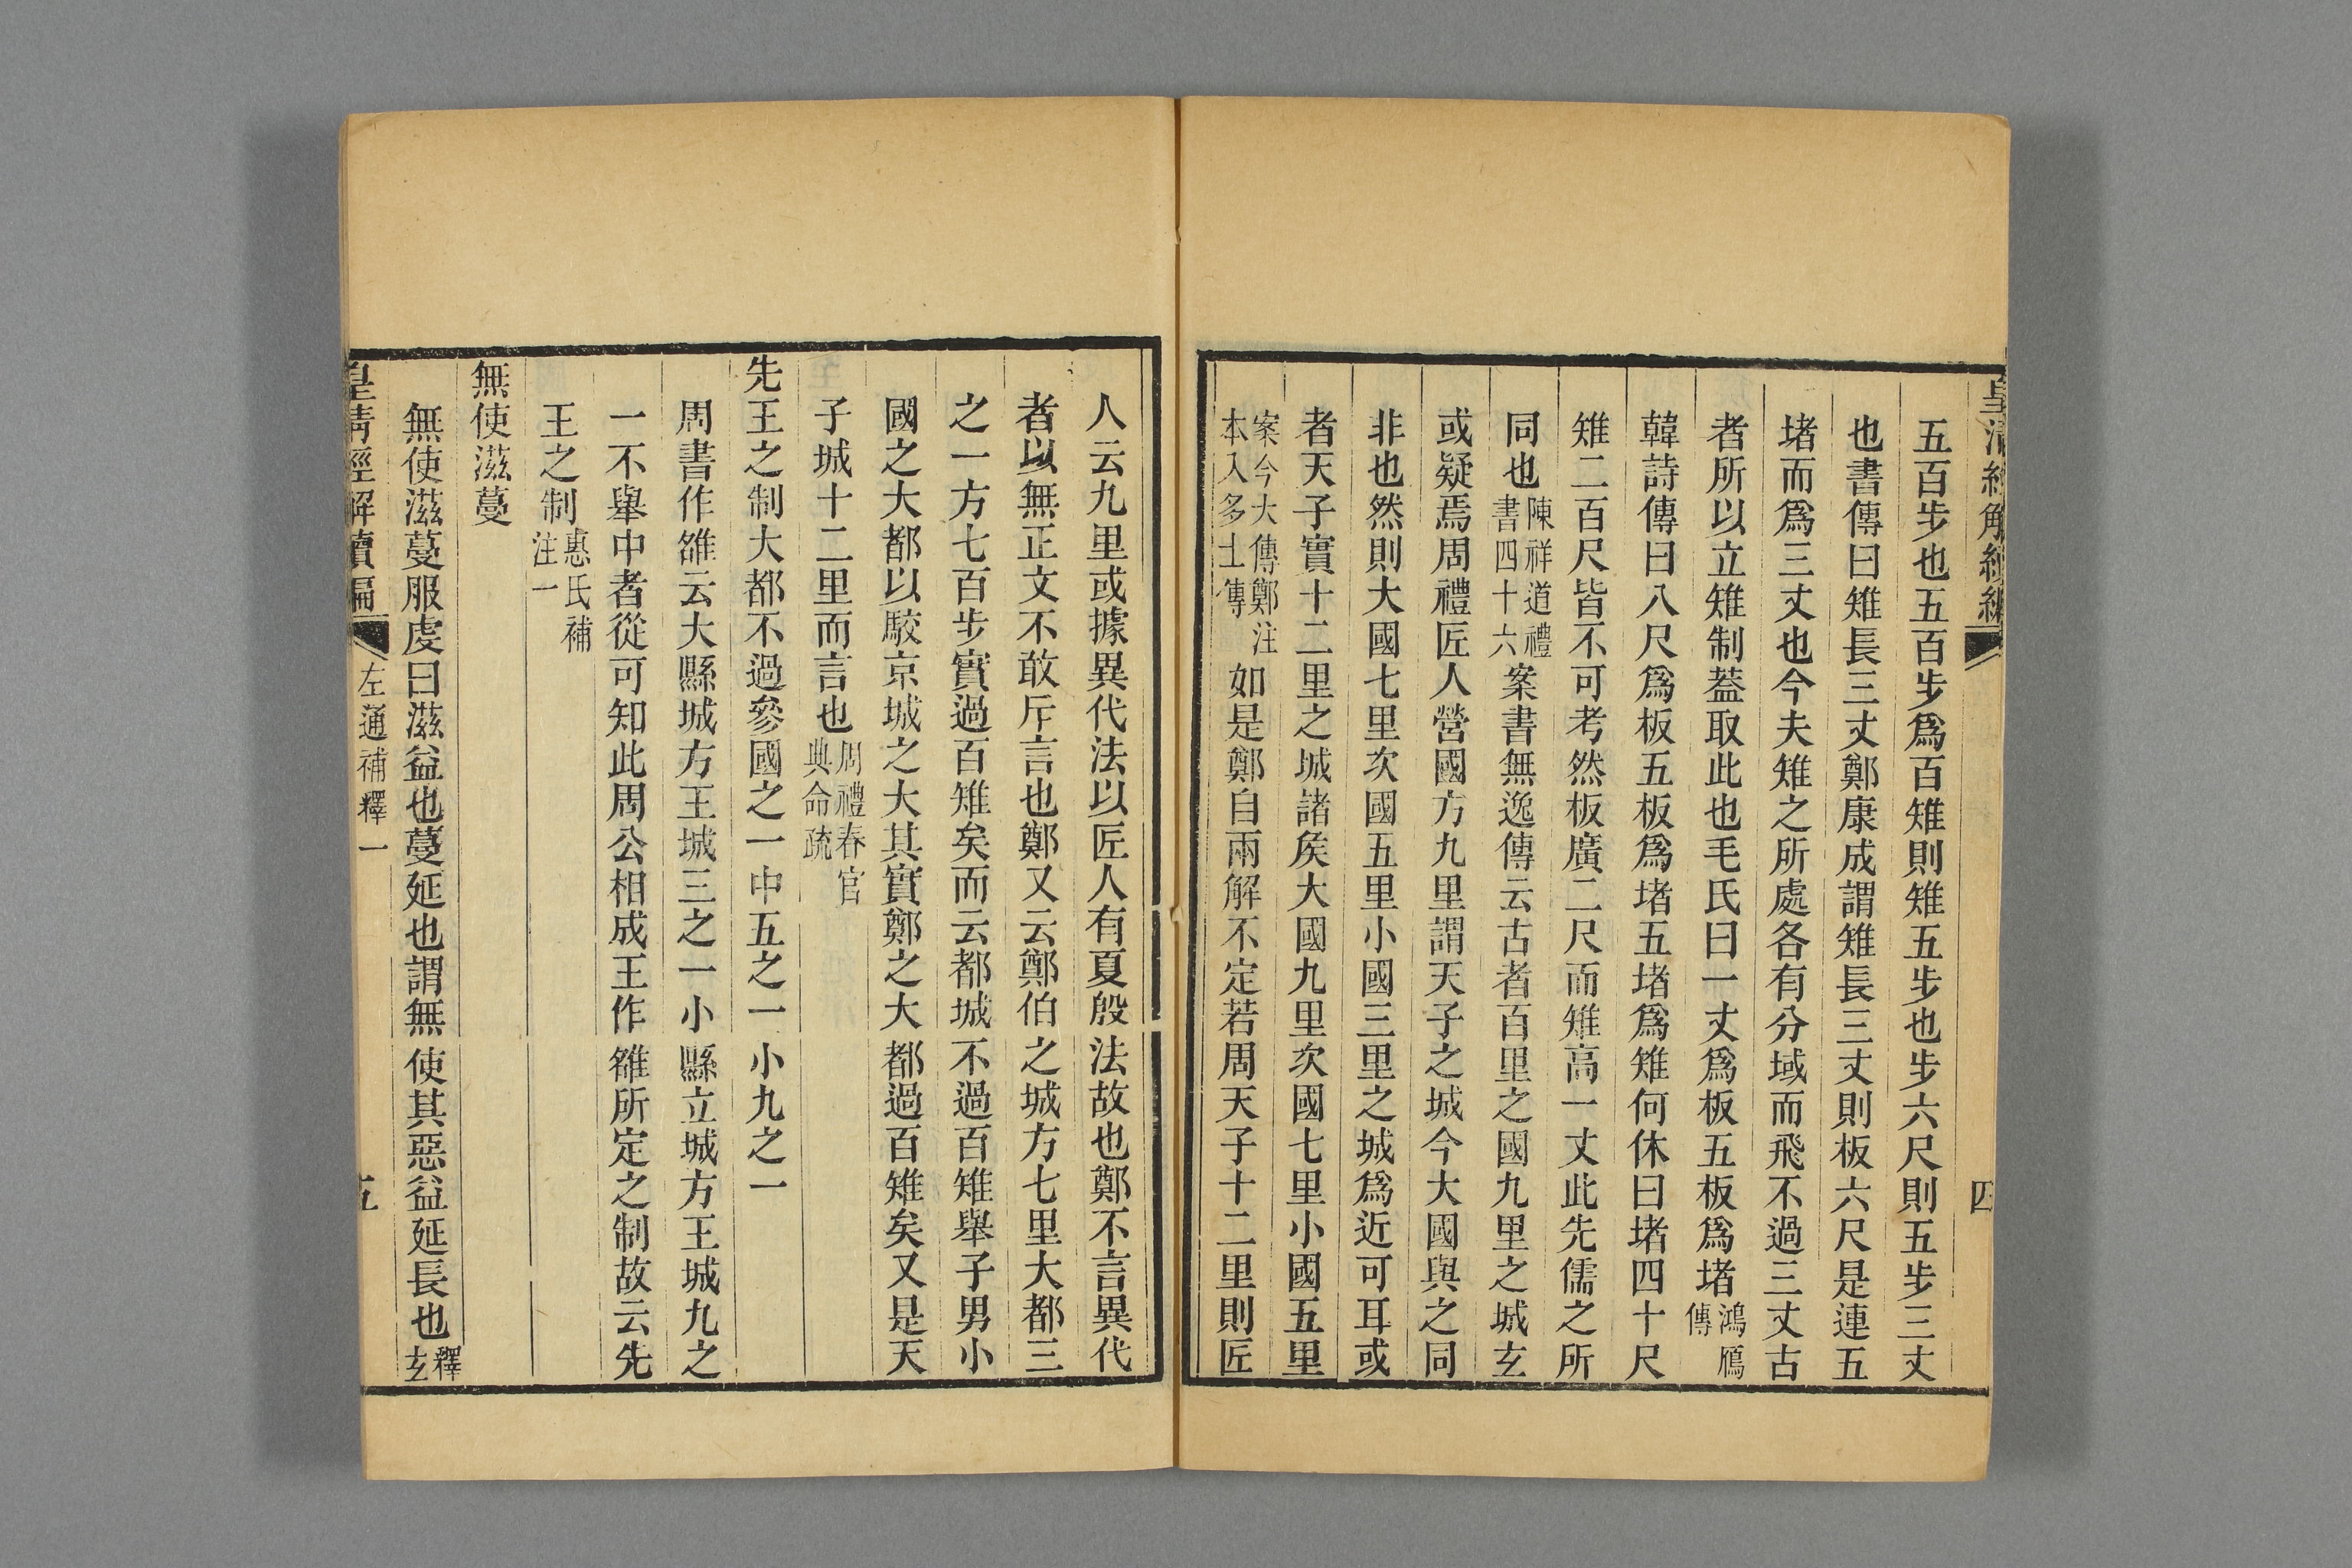 皇清經解續編
四
五百步也五百步爲百雉則雉五步也步六尺則五步三丈
也書傳曰雉長三丈鄭康成謂雉長三丈則板六尺是連五
堵而爲三丈也今夫雉之所處各有分域而飛不過三丈古
者所以立雉制葢取此也毛氏曰一丈爲板五板爲堵鴻鴈傳
韓詩傳曰八尺爲板五板爲堵五堵爲雉何休曰堵四十尺
雉二百尺皆不可考然板廣二尺而雉高一丈此先儒之所
同也陳祥道禮書四十六案書無逸傳云古者百里之國九里之城玄
或疑焉周禮匠人營國方九里謂天子之城今大國與之同
非也然則大國七里次國五里小國三里之城爲近可耳或
者天子實十二里之城諸矦大國九里次國七里小國五里
案今大傳鄭注本入多士傳如是鄭自兩解不定若周天子十二里則匠
人云九里或據異代法以匠人有夏殷法故也鄭不言異代
者以無正文不敢斥言也鄭又云鄭伯之城方七里大都三
之一方七百步實過百雉矣而云都城不過百雉舉子男小
國之大都以駮京城之大其實鄭之大都過百雉矣又是天
子城十二里而言也周禮春官典命疏
先王之制大都不過參國之一中五之一小九之一
周書作雒云大縣城方王城三之一小縣立城方王城九之
一不舉中者從可知此周公相成王作雒所定之制故云先
王之制惠氏補注一
無使滋蔓
無使滋蔓服虔曰滋益也蔓延也謂無使其惡益延長也釋玄
皇清經解續編
左通補釋一
五